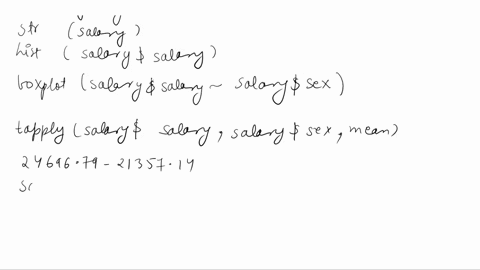 str (salary)
hist (salary $ salary)
boxplot (salary $ salary ~ salary $ sex)
tapply (salary $ salary, salary $ sex, mean)
24696.79 - 21357.14